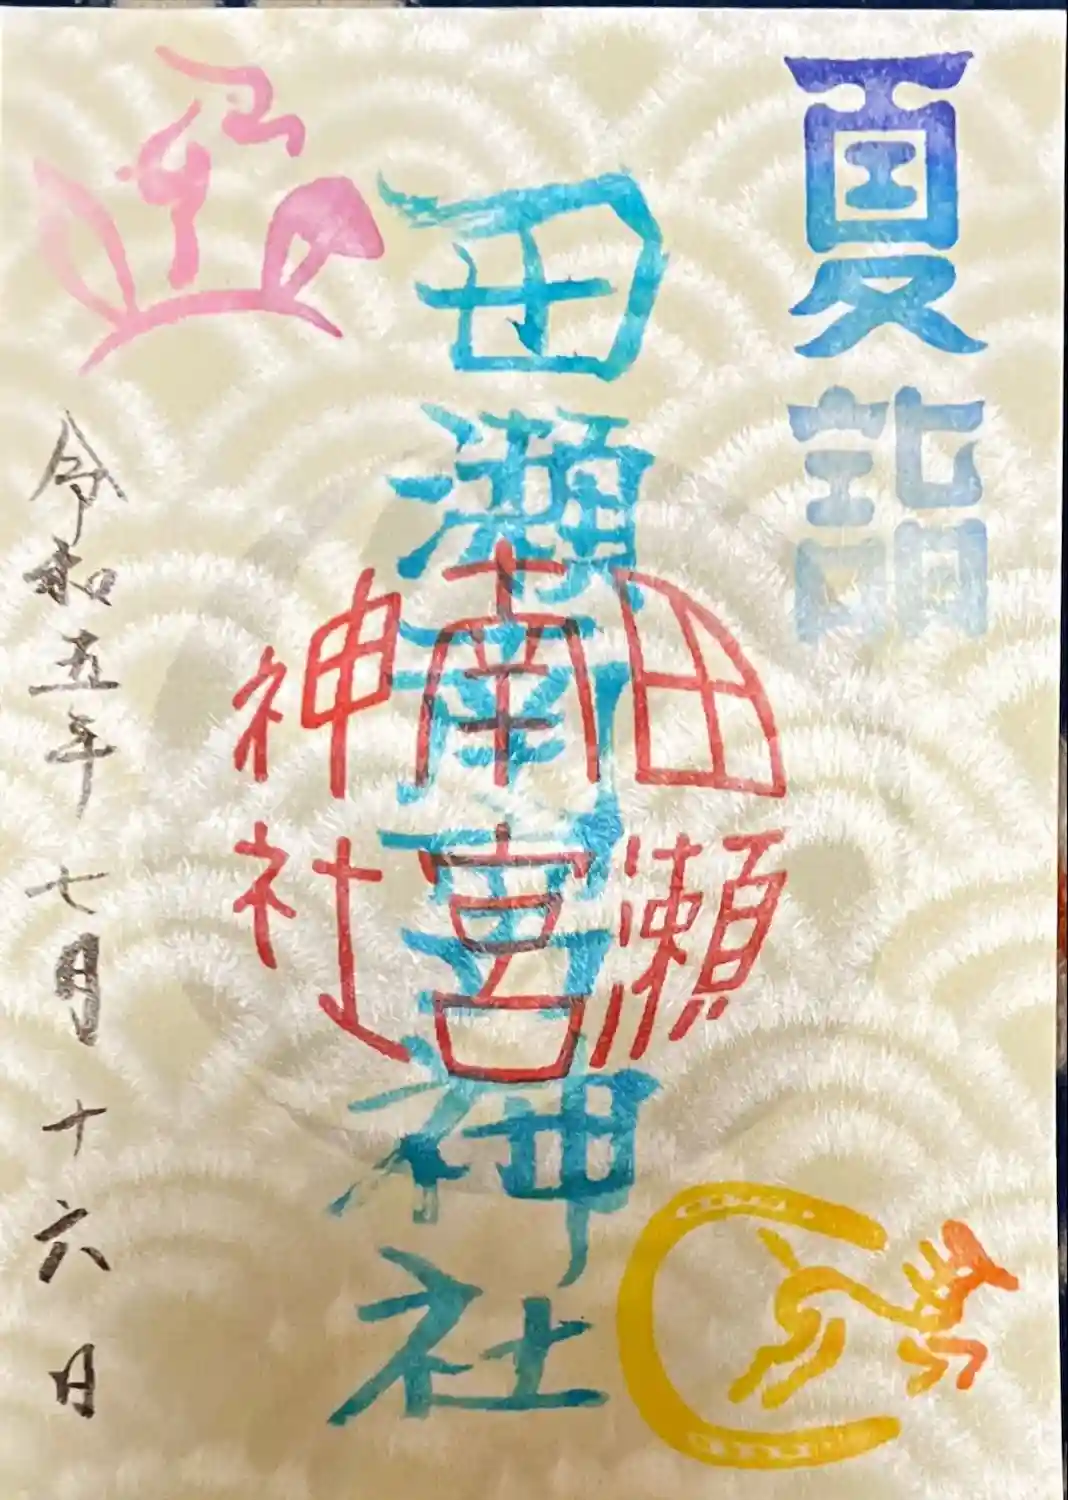 夏詣
田瀬南宮神社
田瀬
南宮
神社
令和五年七月十六日